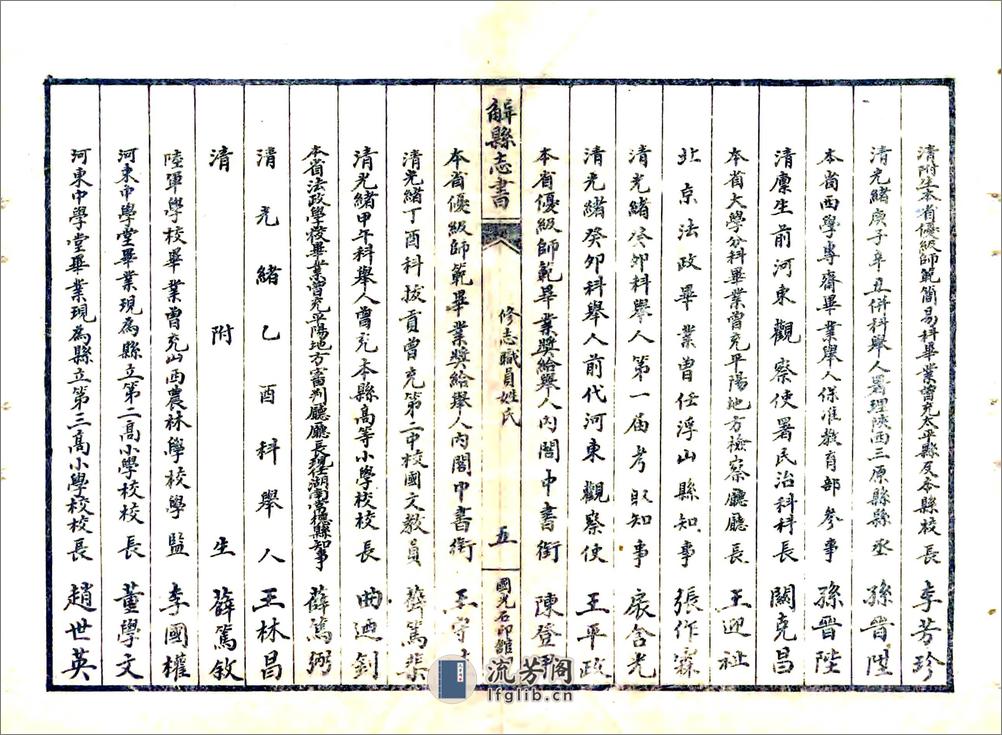 清附生本省優級師範簡易科畢業曾充太平縣及本縣校長 李芳珍
清光緒庚子辛丑併科舉人署理陝西三原縣縣丞 孫晉陞
本省西學專齋畢業舉人保准教育部參事 孫晉陛
清廩生前河東觀察使署民治科科長 闞克昌
本省大學分科畢業曾充平陽地方檢察廳廳長 王迎祉
北京法政畢業曾任浮山縣知事 張作霖
清光緒癸卯科舉人第一届考取知事 含光
清光緒癸卯科舉人前代河東觀察使 王平政
本省優級師範畢業奬給舉人內閣中書銜 陳登
解縣志書
修志職員姓氏
五
國光石印館
本省優級師範畢業奬給舉人內閣中書銜
清光緒丁酉科拔貢曾充第二中校國文教員 篤棐
清光緒甲午科舉人曾充本縣高等小學校校長 曲迺釗
本省法政學校畢業曾充平陽地方審判廳廳長現任湖南常德縣知事 薛篤弼
清光緒乙酉科舉人 王林昌
清附生 薛篤敘
陸軍學校畢業曾充山西農林學校學監 李國權
河東中學堂畢業現為縣立第二高小學校校長 董學文
河東中學堂畢業現為縣立第三高小學校校長 趙世英
流芳閣
lfglib.cn